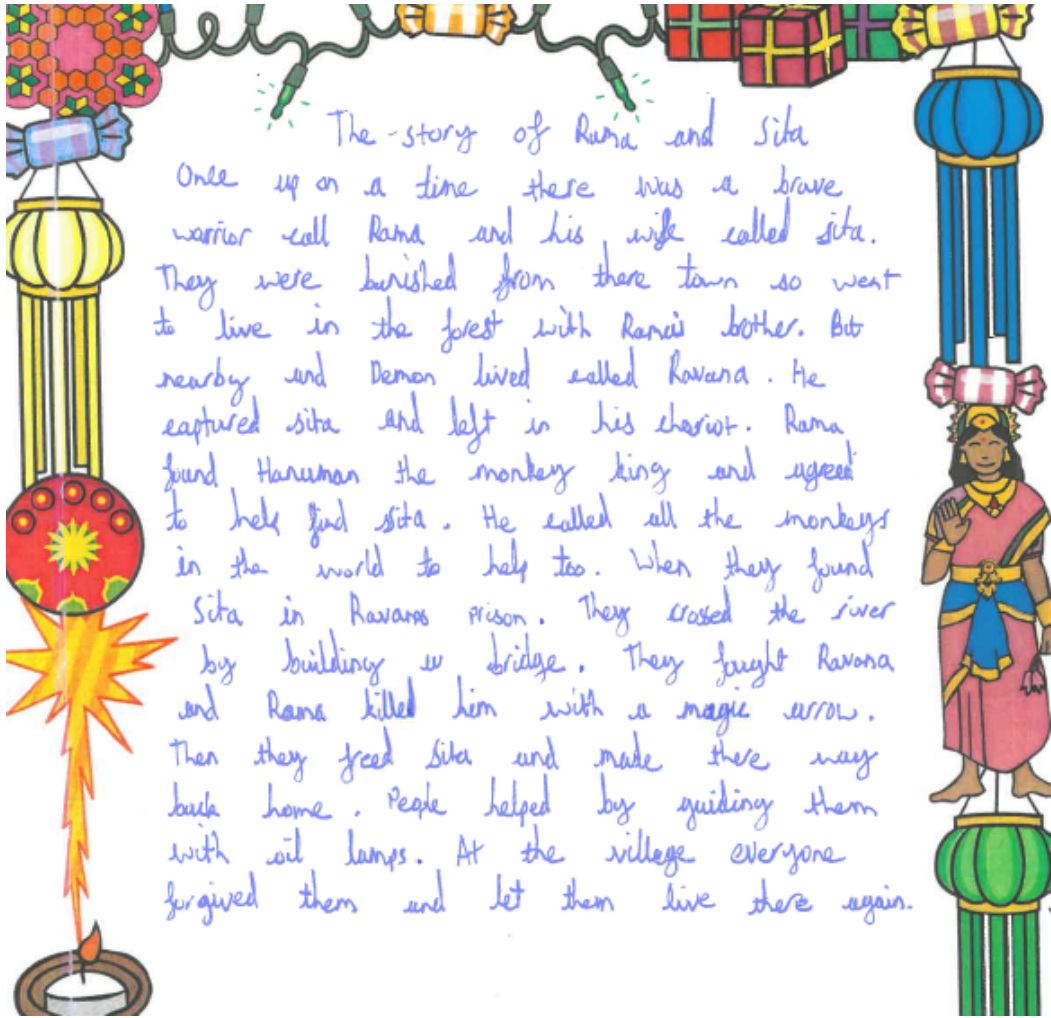 The story of Rama and Sita
Once up on a time there was a brave
warrior call Rama and his wife called sita.
They were banished from there town so went
to live in the forest with Rama's bother. But
nearby and Demon lived called Ravana. He
captured sita and left in his chariot. Rama
found Hanuman the monkey king and agreed
to help find sita. He called all the monkeys
in the world to help too. When they found
Sita in Ravanas prison. They crossed the river
by building a bridge. They fought Ravana
and Rama killed him with a magic arrow.
Then they freed Sita and made there way
back home. People helped by guiding them
with oil lamps. At the village everyone
forgived them and let them live there again.